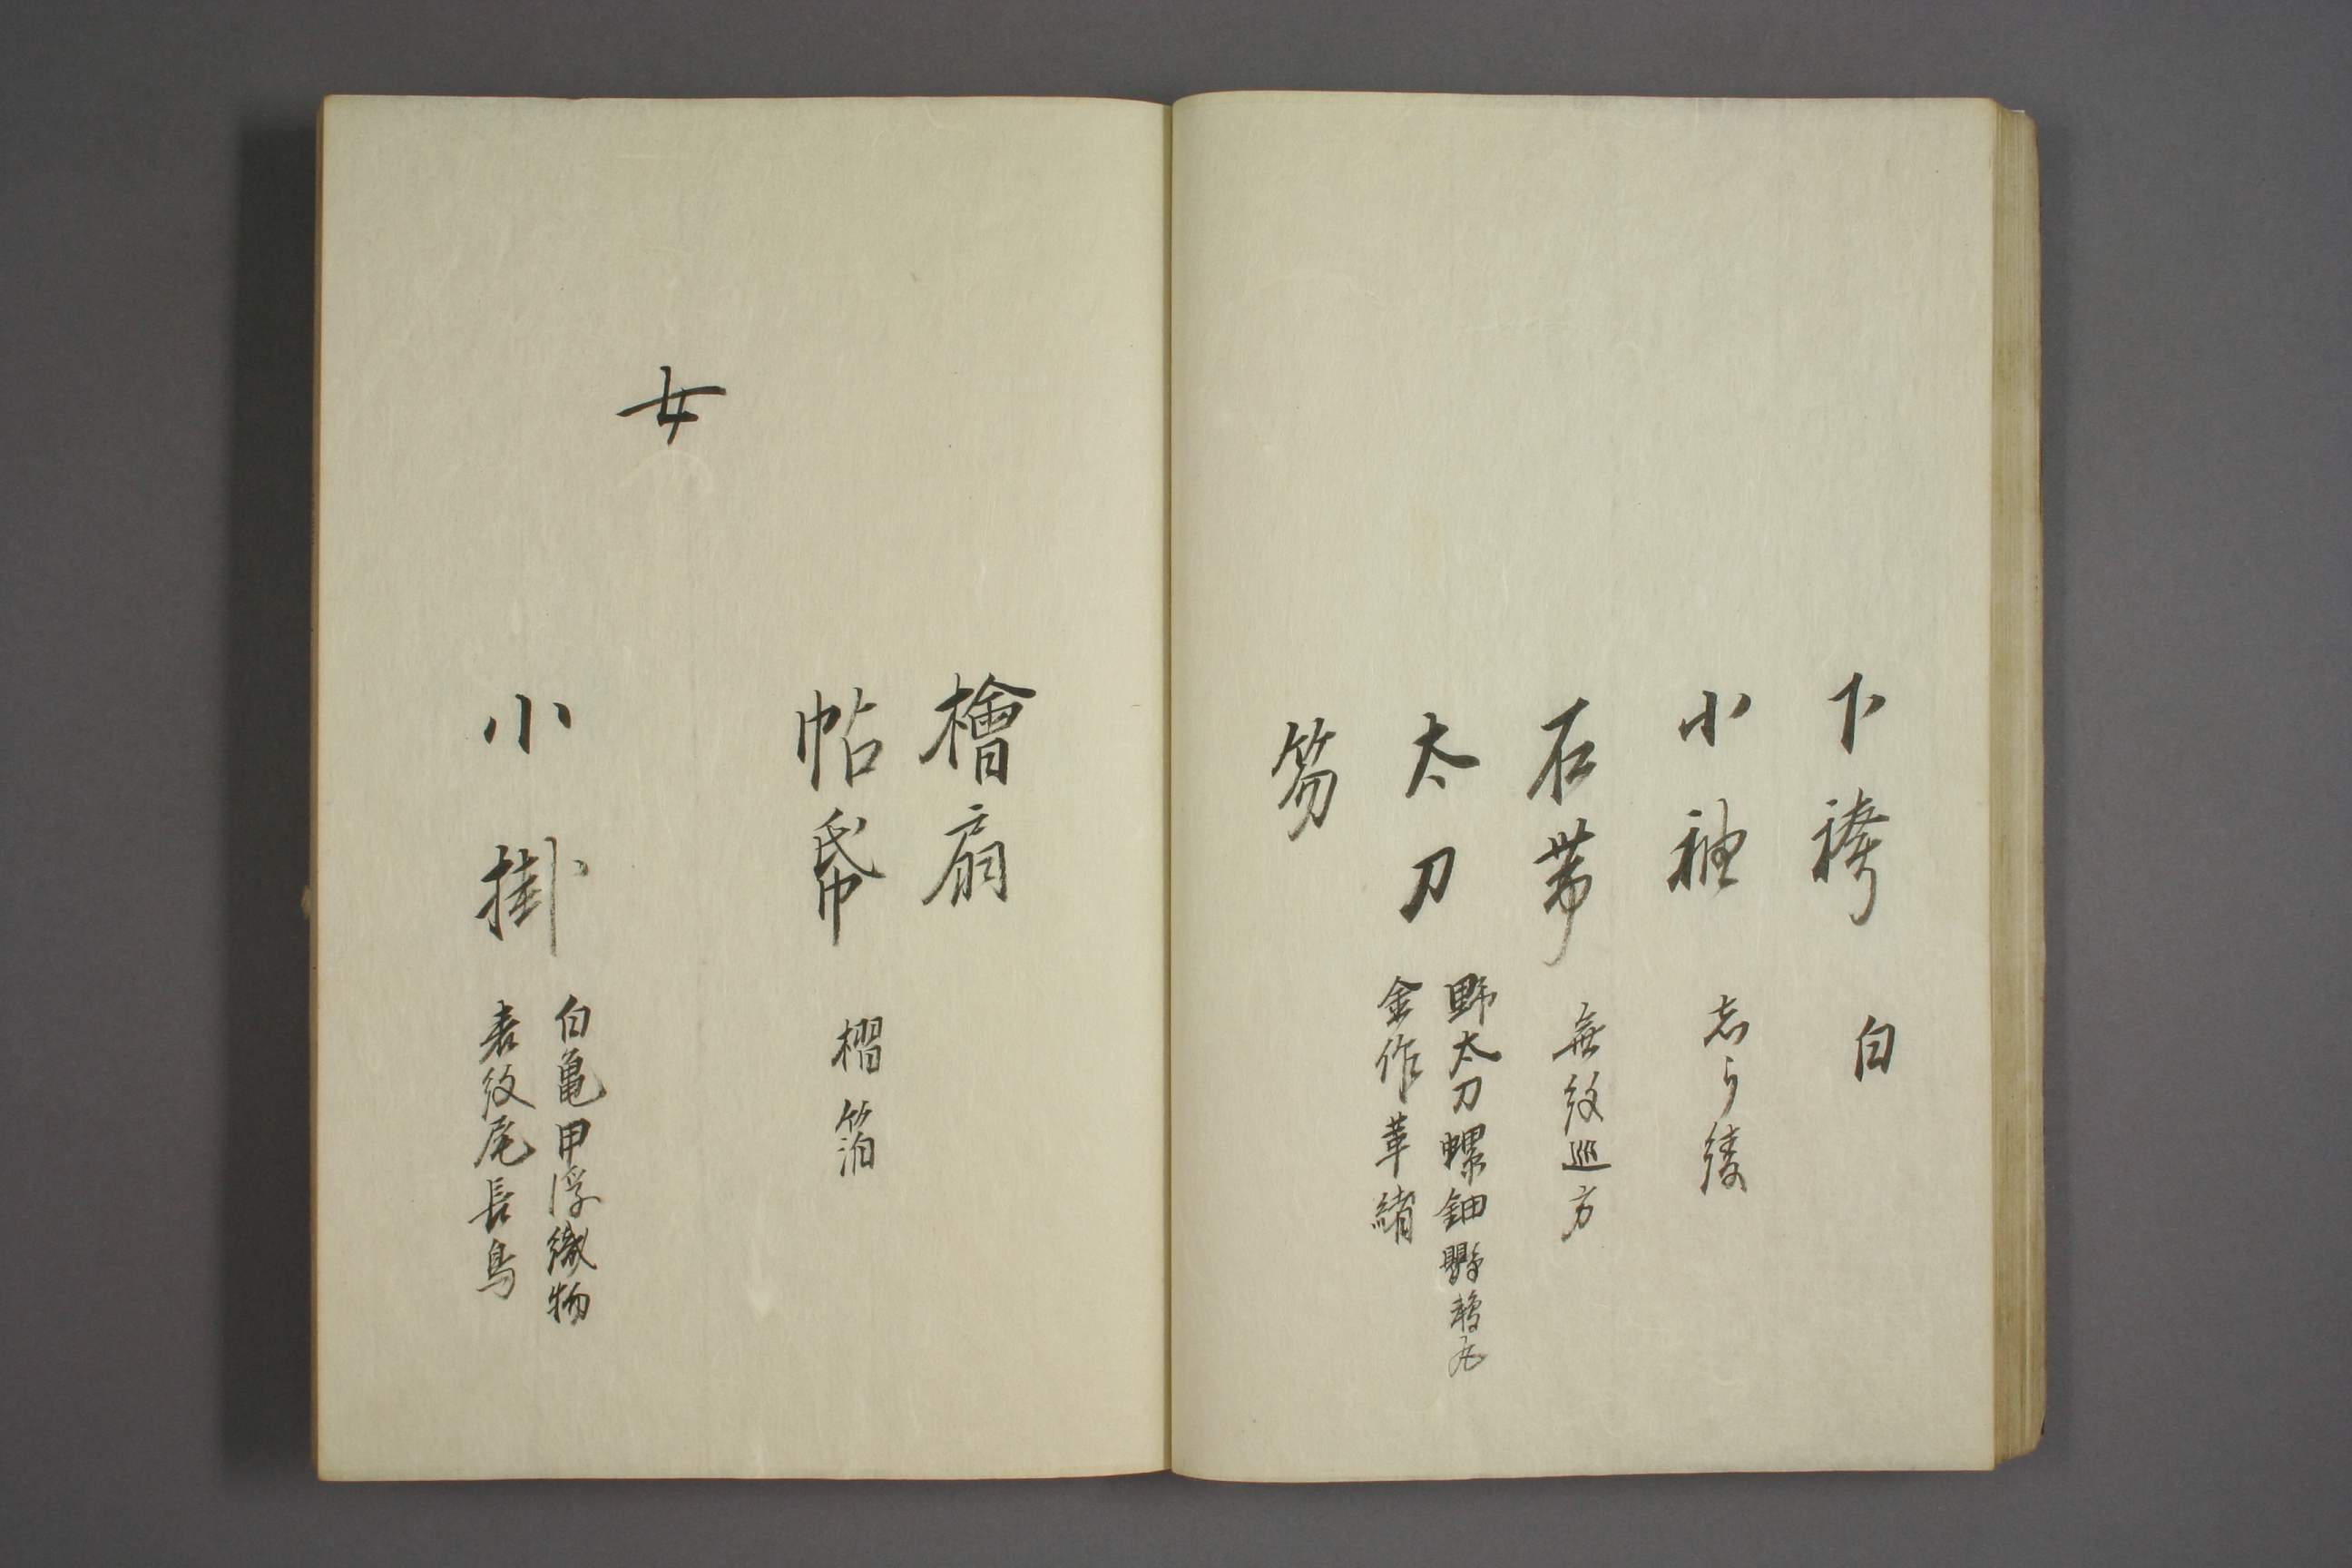 下袴 白
小袖 志ら綾
石帯 無紋巡方
太刀 野太刀螺鈿縣鶴丸
金作革緒
笏
檜扇
帖帋 摺箔
女
小掛 白亀甲浮織物
表紋尾長鳥